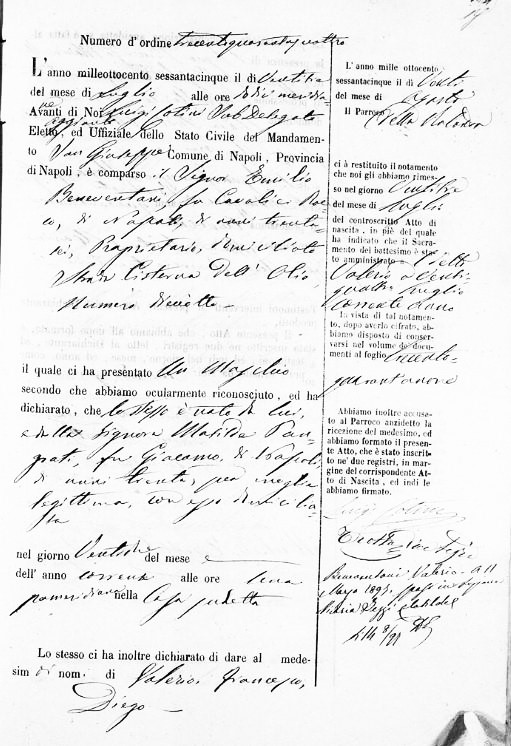 Numero d'ordine trecentoquarantaquattro
L'anno milleottocento sessantacinque il dì Ventitre
del mese di Luglio alle ore dodici meridiane
Avanti di Noi Luigi Cotini Vice Delegato
aggiunto
Eletto, ed Uffiziale dello Stato Civile del Mandamento
San Giuseppe Comune di Napoli, Provincia
di Napoli, è comparso il Signor Emilio
Beneventani, fu
di Napoli, di anni trenta
sei, Proprietario, domiciliato
Strada Cisterna dell' Olio,
Numero diciotto
il quale ci ha presentato Un Maschio
secondo che abbiamo ocularmente riconosciuto, ed ha
dichiarato, che lo stesso è nato da lui,
e dalla Signora Matilde
fu Giacomo, di Napoli,
di anni trenta, sua moglie
legittima, con esso domicilia-
ta
nel giorno del mese
dell' anno corrente alle ore una
pomeridiana nella Casa sudetta
Lo stesso ci ha inoltre dichiarato di dare al mede-
sim di nom. di Valerio, Francesco,
Diego
L'anno mille ottocento
sessantacinque il dì Venti
del mese di Agosto
Il Parroco
della Rotonda
ci è restituito il notamento
che noi gli abbiamo rimes-
so nel giorno Ventitre
del mese di Luglio
del controscritto Atto di
nascita, in piè del quale
ha indicato che il Sacra-
mento del battesimo è sta-
to amministrato a detto
Valerio a venti-
quattro Luglio
corrente anno
In vista di tal notamen-
to, dopo averlo cifrato, ab-
biamo disposto di conser-
varsi nel volume de' docu-
menti al foglio trecento-
quarantanove
Abbiamo inoltre accusato
al Parroco anzidetto la
ricezione del medesimo, ed
abbiamo formato il presen-
te Atto, che è stato inscrit-
to ne' due registri, in mar-
gine del corrispondente At-
to di Nascita, ed indi le
abbiamo firmato.
Luigi Cotini
Valerio. A 11
Marzo 189 sposò
Maria Clotilde